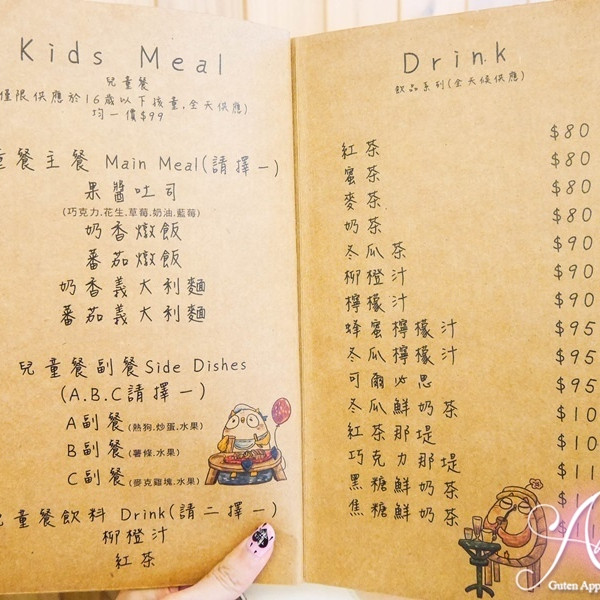 Kids Meal
兒童餐
僅限供應於16歲以下孩童,全天供應)
均一價$99
童餐主餐 Main Meal(請擇一)
果醬吐司
(巧克力.花生.草莓.奶油.藍莓)
奶香燉飯
蕃茄燉飯
奶香義大利麵
蕃茄義大利麵
兒童餐副餐Side Dishes
(A.B.C請擇一)
A副餐(熱狗.炒蛋.水果)
B副餐(薯條.水果)
C副餐(麥克雞塊.水果)
兒童餐飲料 Drink(請二擇一)
柳橙汁
紅茶
Drink
飲品系列(全天候供應)
紅茶 $80
蜜茶 $80
麥茶 $80
奶茶 $80
冬瓜茶 $90
柳橙汁 $90
檸檬汁 $90
蜂蜜檸檬汁 $95
冬瓜檸檬汁 $95
可爾必思 $95
冬瓜鮮奶茶 $10
紅茶那堤 $10
巧克力那堤 $11
黑糖鮮奶茶
焦糖鮮奶茶
Guten App